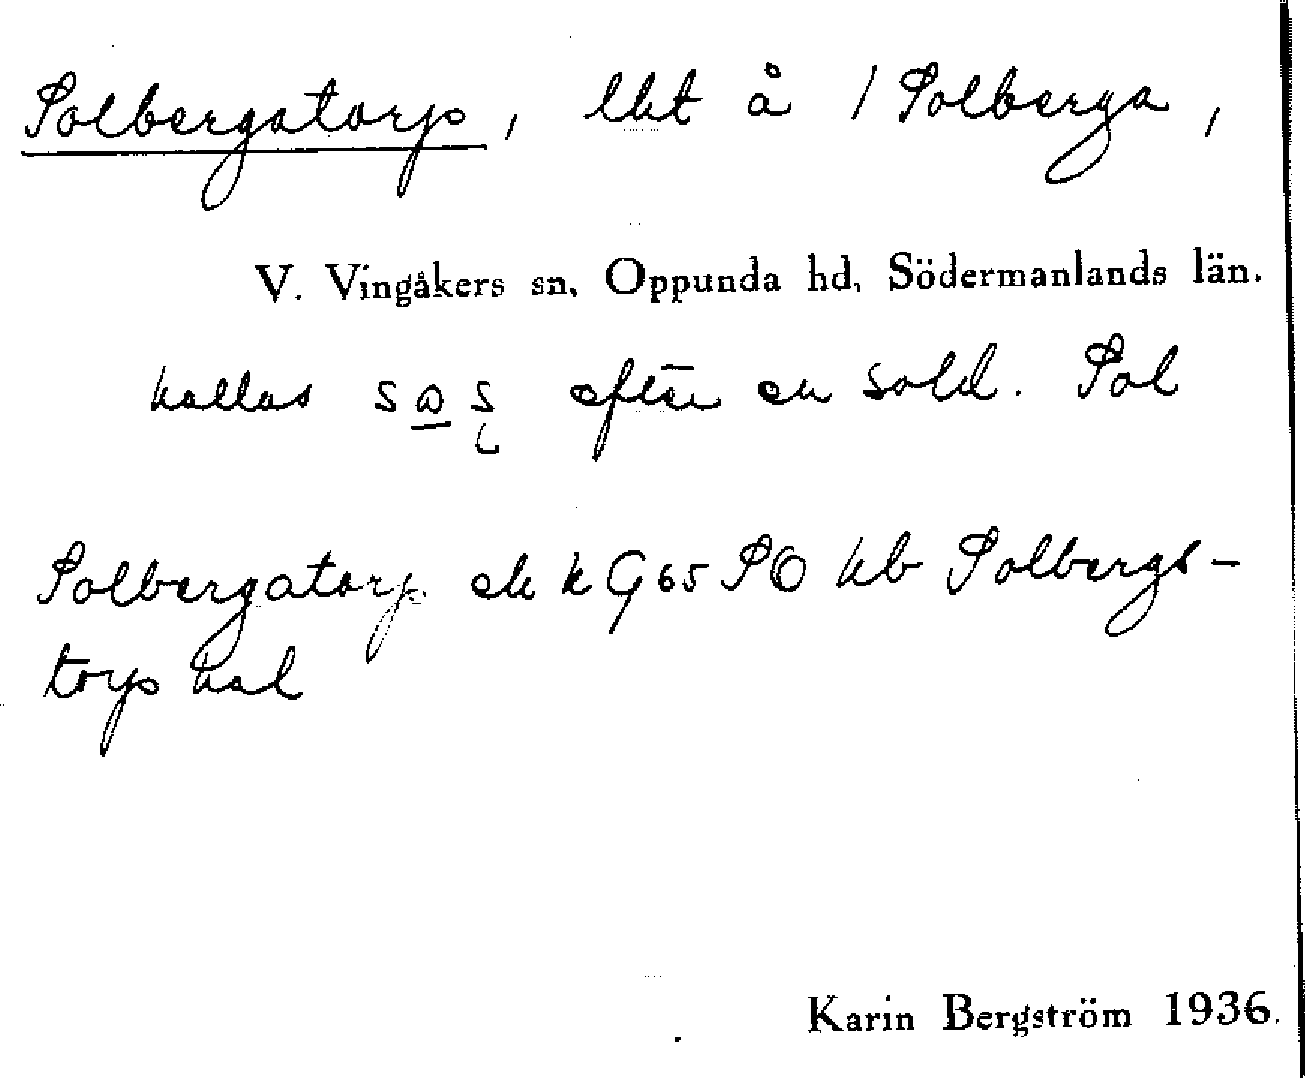 Solbergatorp, lht å 1 Solberga,
V. Vingåkers sn, Oppunda hd, Södermanlands län.
kallas sας efter en sold. Sol
Solbergatorp ek k G65 SO kb Solbergs-
torp hal
Karin Bergström 1936.